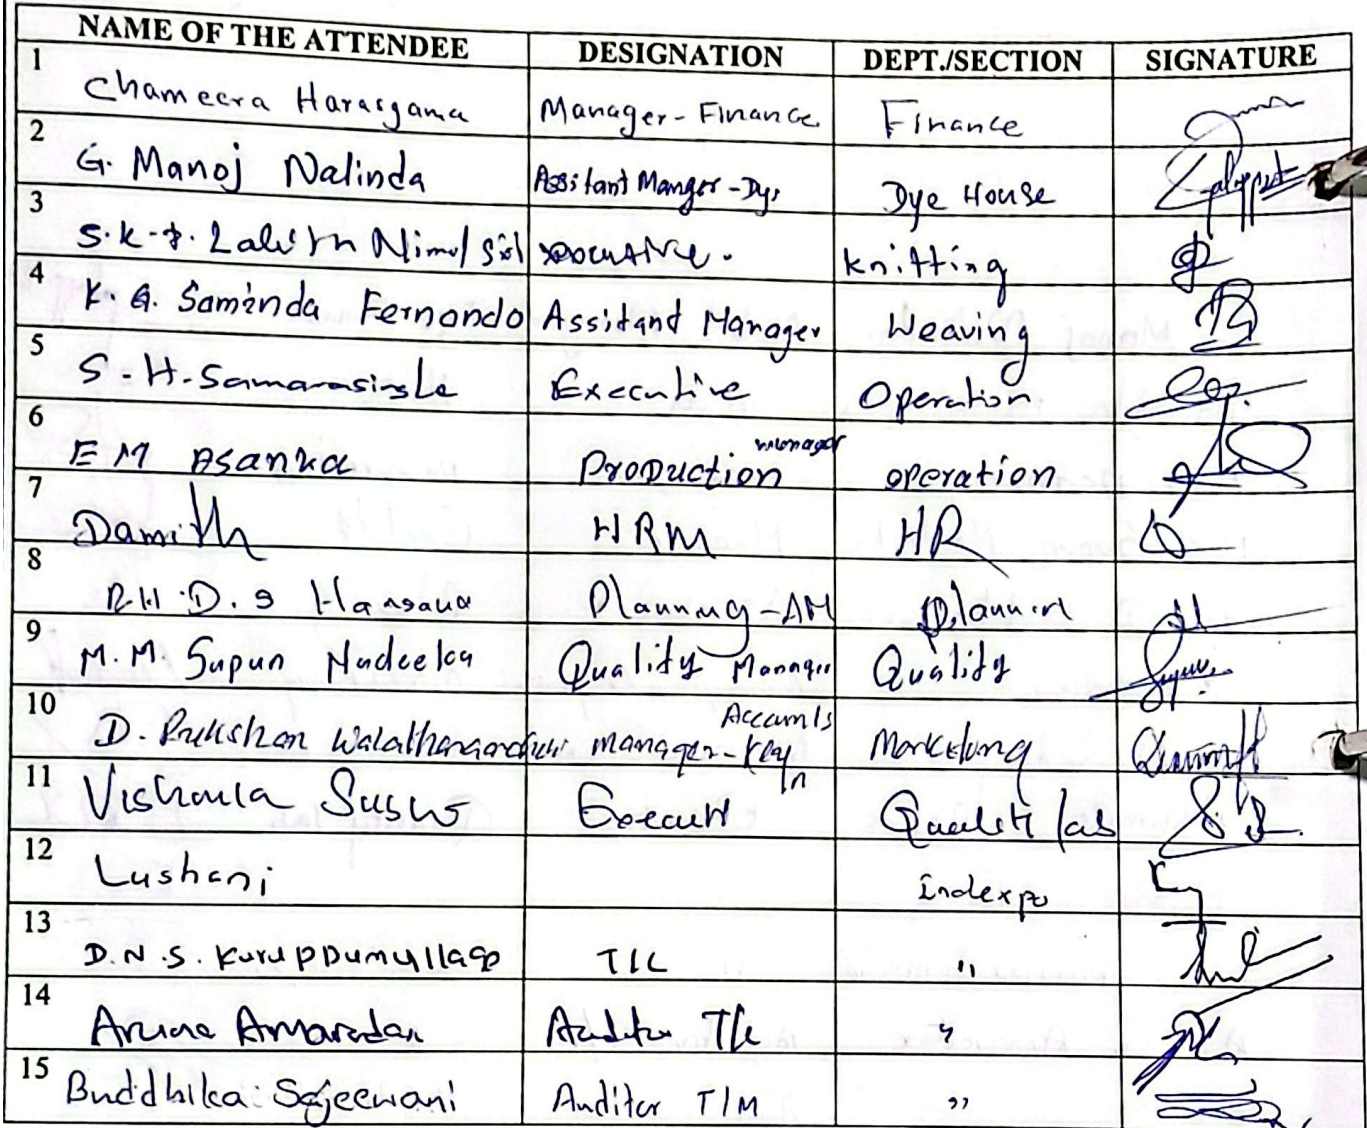 NAME OF THE ATTENDEE DESIGNATION DEPT./SECTION SIGNATURE
1 Chameera Harasgama Manager-Finance Finance
2 G. Manoj Nalinda Assitant Manger-Dye Dye House
3 S.K.P. Lalith Nimal Executive. knitting
4 K. G. Saminda Fernando Assitand Manager Weaving
5 S.H. Samarasingle Executive Operation
6 EM Asanka Production manager operation
7 Damith HRM HR
8 R.H.D.S Hansana Planning-AM Planning
9 M.M. Supun Nadeeka Quality Manager Quality
10 D. Rukshan manager-key Accounts Marketing
11 Quality lab
12 Lushani Indexpo
13 D.N.S. Kuruppumullage T/L "
14 Aruna Auditor T/L "
15 Buddhika Sajeewani Auditor T/M "